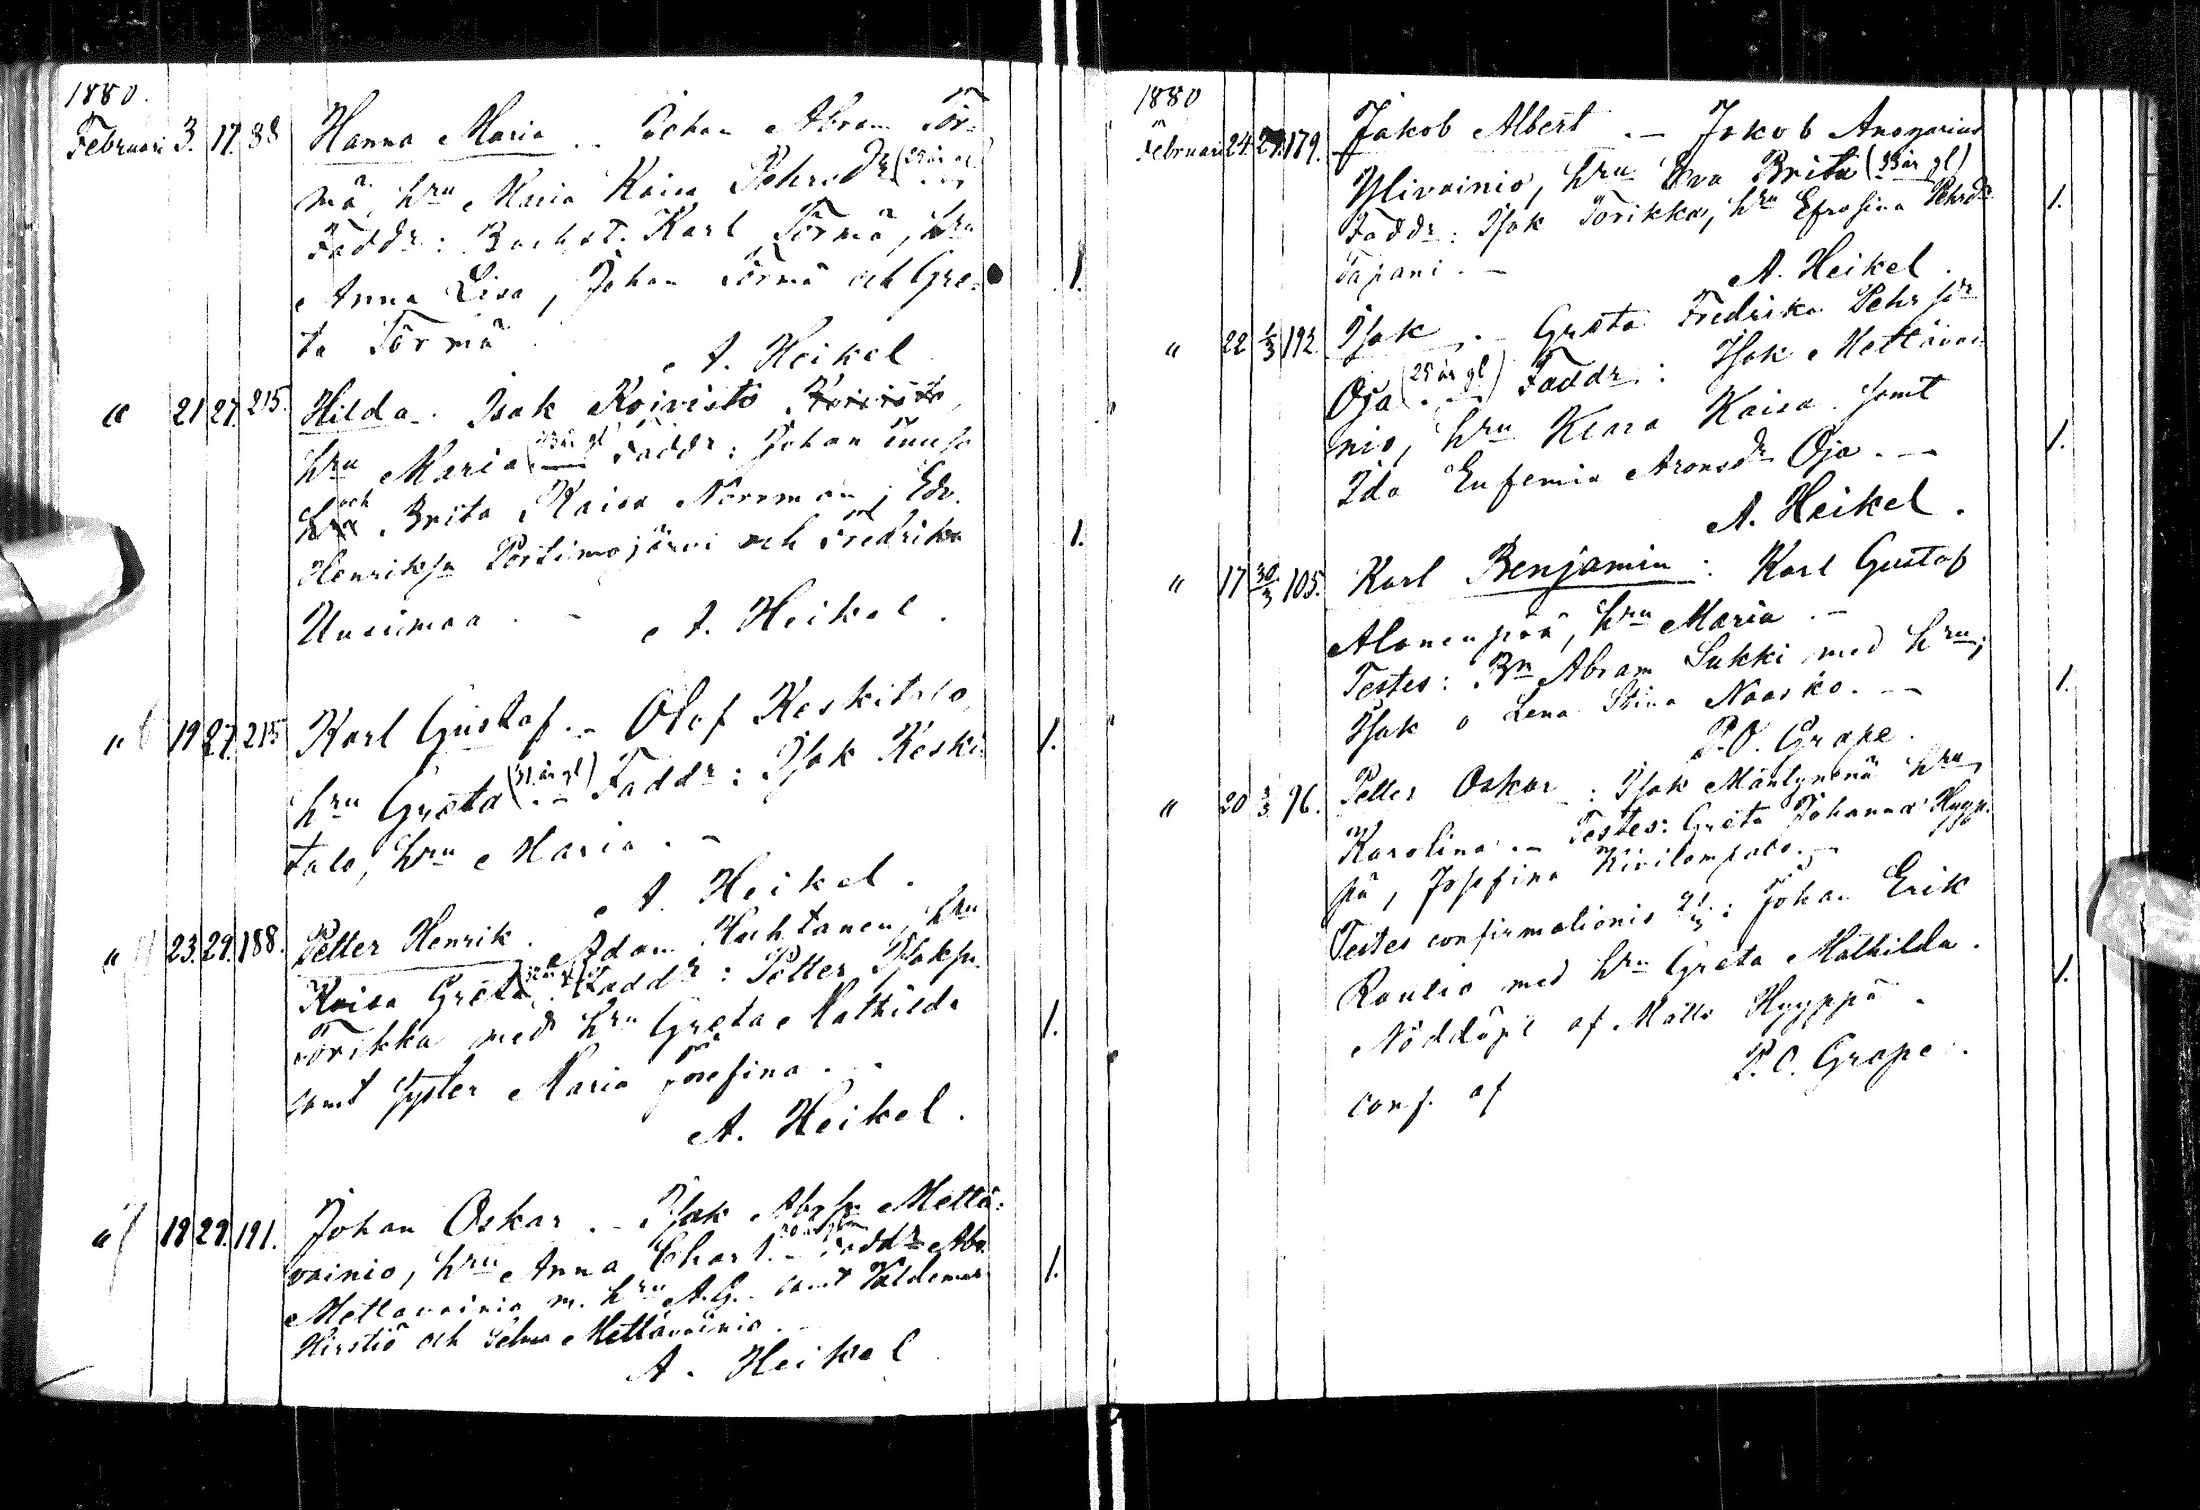 1880.
Februari 3. 17. 88 Hanna Maria . . Johan Abram Tör-
mä, hru Maria Kaisa Pehrsdr
Faddr: Backst. Karl Törmä, hru
Anna Lisa, Johan Törmä och Gre- 1.
ta Törmä
A. Heikel
" 21 27. 215. Hilda. Isak Koivisto Koivisto,
hru Maria Faddr: Johan
och
hru Brita Kaisa Norrman; Edv.
Henriksn Portimojärvi och Fredrika 1.
Uusimaa . - A. Heikel.
" 19 27. 215 Karl Gustaf. - Olof Keskitalo, 1.
hru Greta (31 år gl) Faddr: Isak Keski-
talo, hru Maria . -
A. Heikel.
" 23. 29. 188. Petter Henrik. Adam Huhtanen, hru
Kaisa Greta Faddr: Petter Isaksn
Törikka med hru Greta Mathilda 1.
samt syster Maria Josefina . .
A. Heikel.
" 18 29. 191. Johan Oskar . - Isak Abrsn Mettä-
vainio, hru Anna Charl. - Faddr Abr. 1.
Mettavainio m. hru A.G. samt Valdemar
Hirstiö och Selma Mettävainio. -
A. Heikel
1880
Februari 24. 29. 179. Jakob Albert . - Jakob Ansgarius
Ylivainio, hru Eva Brita (33 år gl)
Faddr: Isak Törikka, hru Efrosina Pehrsdr 1.
Tapani . - A. Heikel.
" 22 1/3 192. Isak . - Greta Fredrika Pehrsdr
Oja (25 år gl) Faddr: Isak Mettävai-
nio, hru Klara Kaisa samt 1.
Ida Eufemia Aronsdr Oja . -
A. Heikel.
" 17 30/3 105. Karl Benjamin : Karl Gustaf
Alanenpää, hru Maria . -
Testes: Bn Abram Lukki med hru; 1.
Isak o Lena Stina Naasko. -
P.O. Grape.
" 20 3/3 96. Petter Oskar : Isak Mäntynenä hru
Karolina . - Testes: Greta Johanna Hyyp-
pä, Josefina Kivilompolo. -
Testes confirmationis : Johan Erik
Rautio med hru Greta Mathilda. 1.
Nöddöpt af Matts Hyyppä .
P.O. Grape.
conf. af